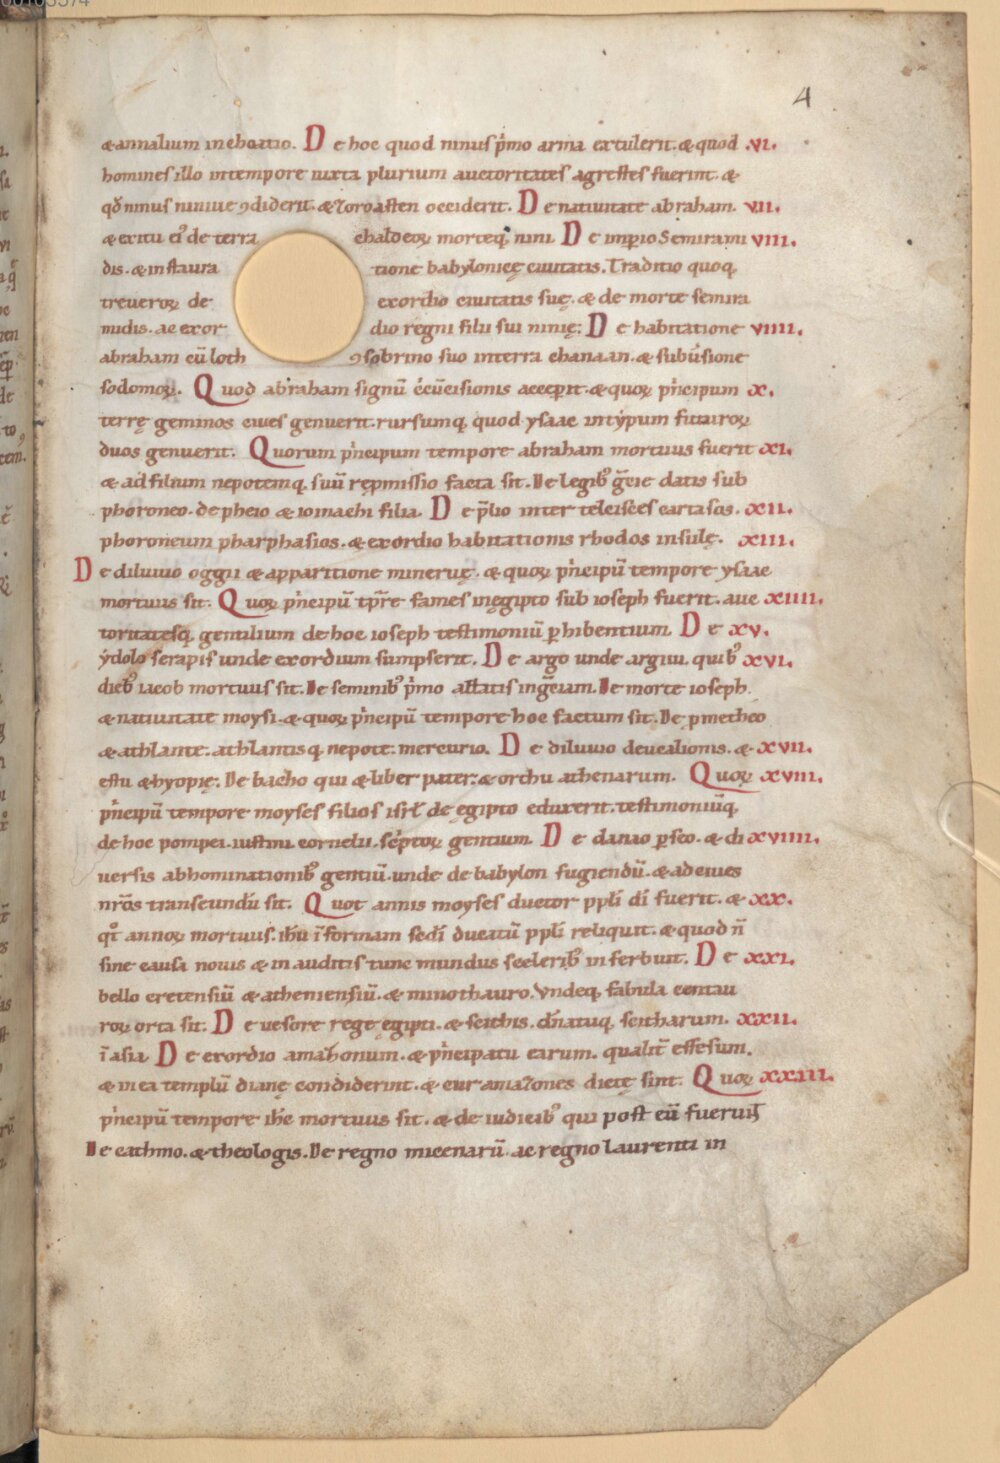 4
& annalium inchoatio. De hoc quod ninus p̍mo arma extulerit. & quod .VI.
homines illo in tempore iuxta plurium auctoritates agrestes fuerint. &
qđ ninus niniue ꝯdiderit. & zoroasten occiderit. De natiuitate abraham. VII.
& exitu ei᾽ de terra chaldeoꝝ morteq; nini. De imperio Semirami VIII.
dis. & instaura tione babylonicę ciuitatis. Traditio quoq;
treueroꝝ de exordio ciuitatis suę. & de morte semira
midis. ac exor dio regni filii sui ninię: De habitatione VIIII.
abraham cū loth ꝯsobrino suo in terra chanaan. & subūsione
sodomoꝝ. Quod abraham signū ccūcisionis accepit. & quoꝝ p̍ncipum X.
terrę geminos ciues genuerit. rursumq; quod ysaac in týpum futuroꝝ
duos genuerit. Quorum p̍ncipum tempore abraham mortuus fuerit XI.
& ad filium nepotemq; suū repmissio facta sit. De legib᾽ grecie datis sub
phoroneo. de pheio & io inachi filia. De p̄lio inter telcisces cartasos. XII.
phoroneum pharphasios. & exordio habitationis rhodos insulę. XIII.
De diluuio oggii & apparitione mineruę. & quoꝝ p̍ncipū tempore ysaac
mortuus sit. Quoꝝ p̍ncipū tp̄re fames in ęgipto sub ioseph fuerit. auc XIIII.
toritatesq; gentilium de hoc ioseph testimoniū ꝑhibentium. De XV.
ýdolo serapis unde exordium sumpserit. De argo unde argiui. quib᾽ XVI.
dieb᾽ iacob mortuus sit. De seminib᾽ p̍mo allatis in greciam. De morte ioseph.
& natiuitate moysi. & quoꝝ p̍ncipū tempore hoc factum sit. De pmetheo
& athlante. athlantisq; nepote. mercurio. De diluuio deucalionis. & XVII.
estu & hyopię. De bacho qui & liber pater. & orchu athenarum. Quoꝝ XVIII.
p̍ncipū tempore moyses filios isrł de ęgipto eduxerit. testimoniūq;
de hoc pompei. iustini cornelii. sc̍ptoꝝ gentium. De danao ꝑseo. & di XVIIII.
uersis abhominationib᾽ gentiū. unde de babylon fugiendū. & ad ciues
nr̄os transeundū sit. Quot annis moyses ductor ppłi dī fuerit. & XX.
qͦt annoꝝ mortuus. ihū ī formam sedī ducatū ppłi reliquit. & quod ñ
sine causa nouis & in auditis tunc mundus sceleribꝰ inferbuit. De XXI.
bello cretensiū & atheniensiū. & minothauro. Vndeq; fabula centau
roꝝ orta sit. De uesore rege ęgipti. & scithis. dn̄atuq; scitharum. XXII.
ī asia. De exordio amazonum. & p̍ncipatu earum. qualit̄ effesum.
& in ea templū dianę condiderint. & cur amazones dictę sint. Quoꝝ XXIII.
p̍ncipū tempore ihc mortuus sit. & de iudicib᾽ qui post eū fuerūt
De cathmo. & theologis. De regno micenarū. ac regno laurenti in